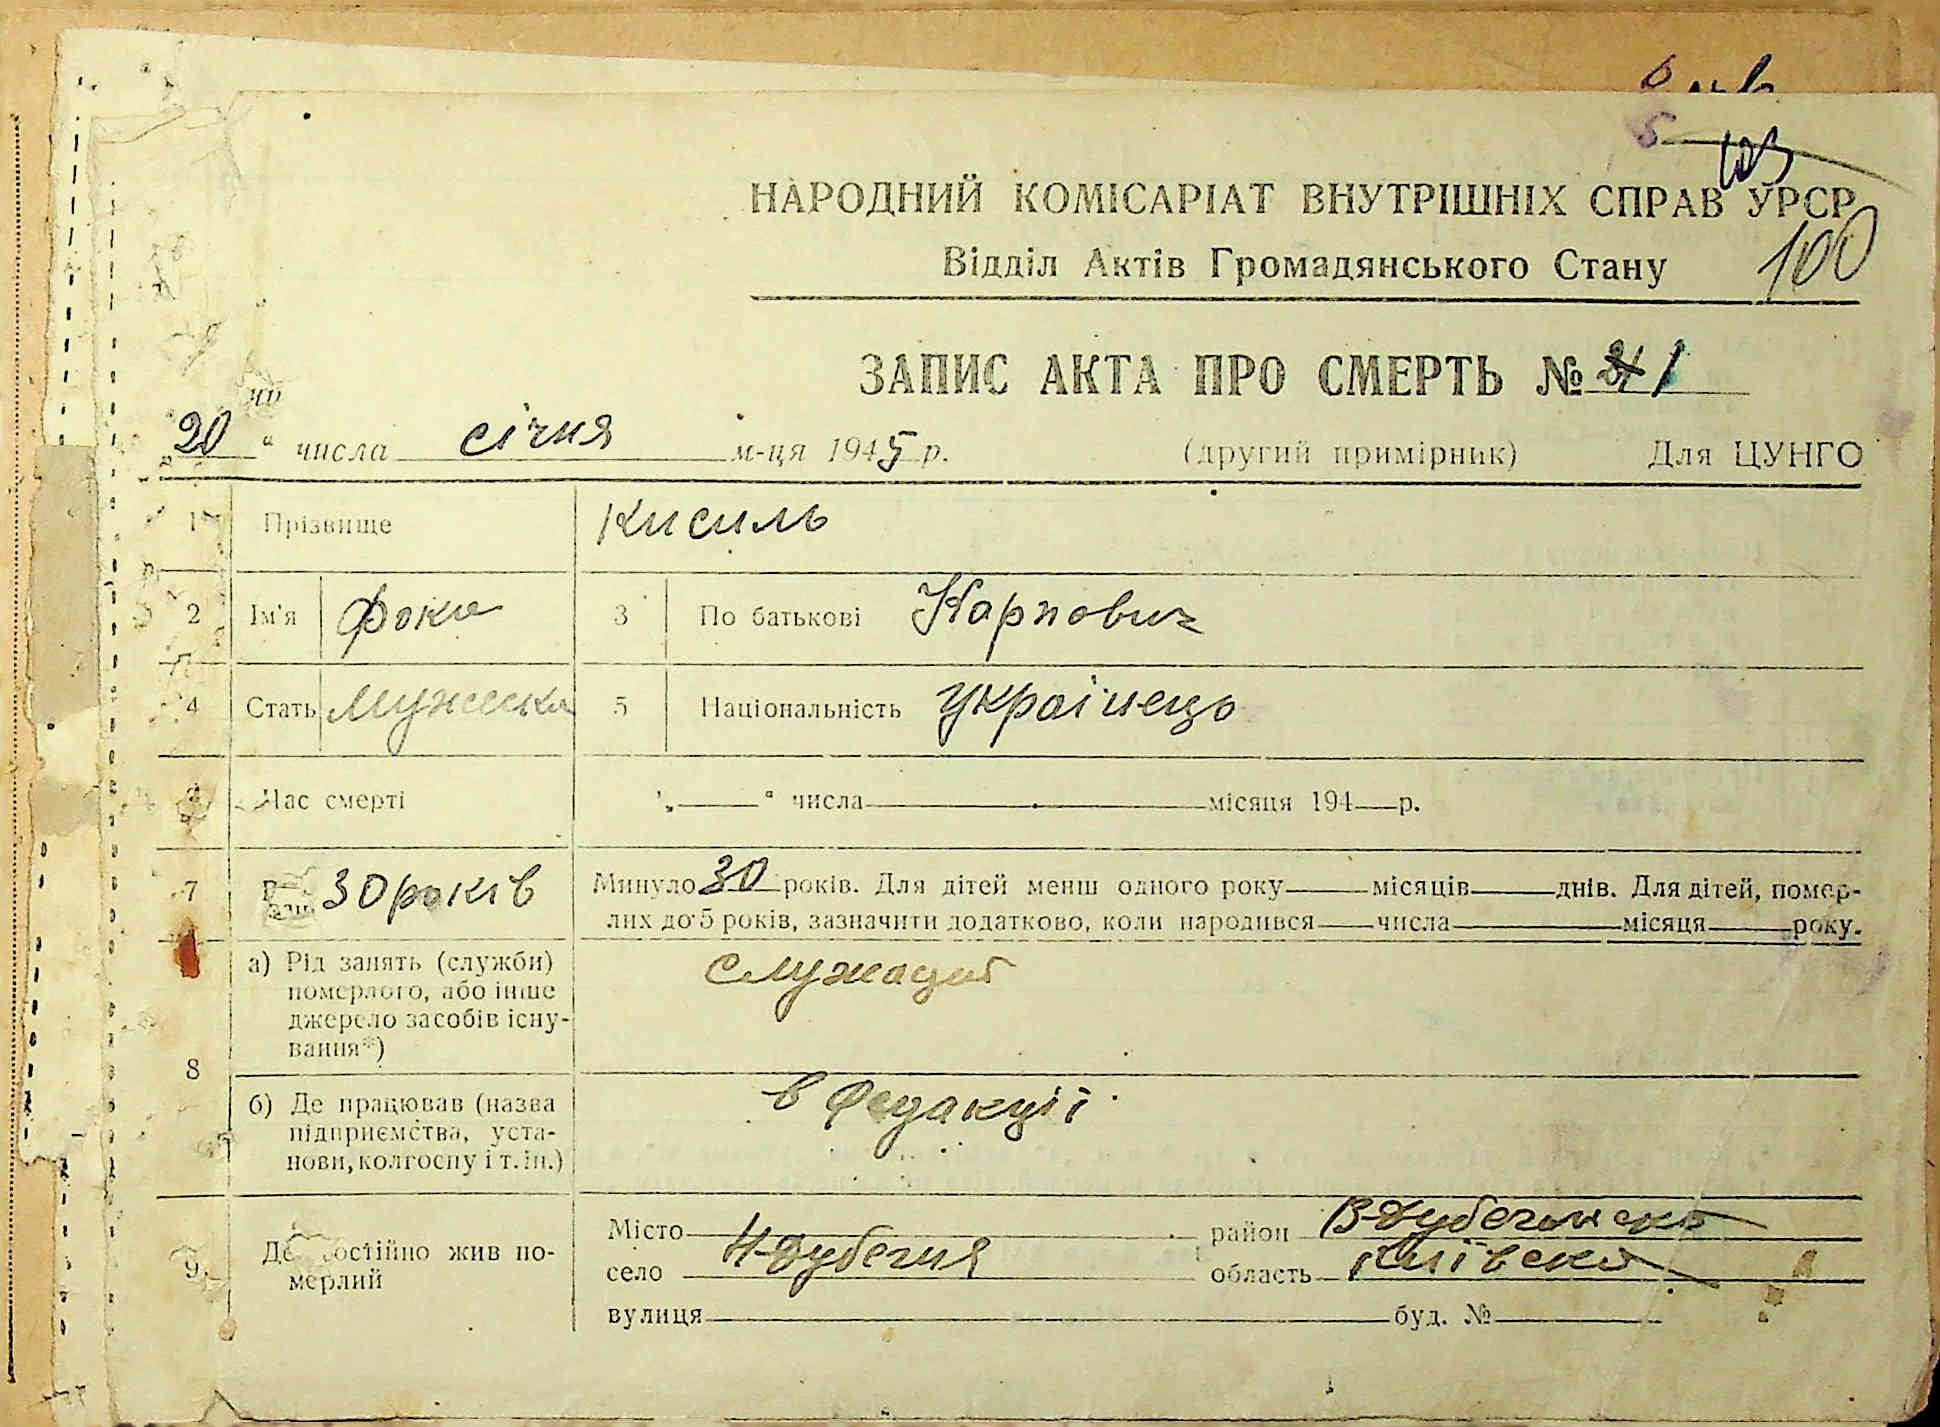 103
НАРОДНИЙ КОМІСАРІАТ ВНУТРІШНІХ СПРАВ УРСР
Відділ Актів Громадянського Стану 100
ЗАПИС АКТА ПРО СМЕРТЬ № 1
20 " числа січня м-ця 1945 р. (другий примірник) Для ЦУНГО
1 Прізвище Кисиль
2 Ім'я Фока 3 По батькові Карпович
4 Стать Мужська 5 Національність українець
Час смерті „ " числа місяця 194 р.
7 30 років Минуло 30 років. Для дітей менш одного року місяців днів. Для дітей, помер-
лих до 5 років, зазначити додатково, коли народився числа місяця року.
8 а) Рід занять (служби) служащий
померлого, або інше
джерело засобів існу-
вання*)
б) Де працював (назва в Редакції
підприємства, уста-
нови, колгоспу і т. ін.)
9 Де постійно жив по-
мерлий
Місто район В-Дубечанско
село Н-Дубечня область Київско
вулиця буд. №